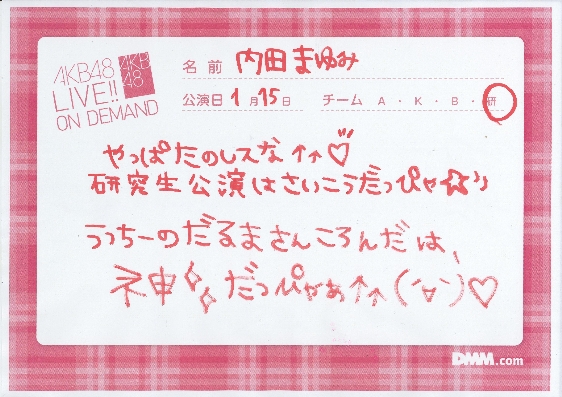 AKB48
LIVE!!
ON DEMAND
AKB
48
名前 内田まゆみ
公演日 1月15日 チーム A・K・B・研
やっぱたのしスな↑↑♡
研究生公演はさいこうだっぴゃ☆
うっちーのだるまさんころんだは、
ネ申だっぴゃぁ↑↑(´∀`)♡
DMM.com